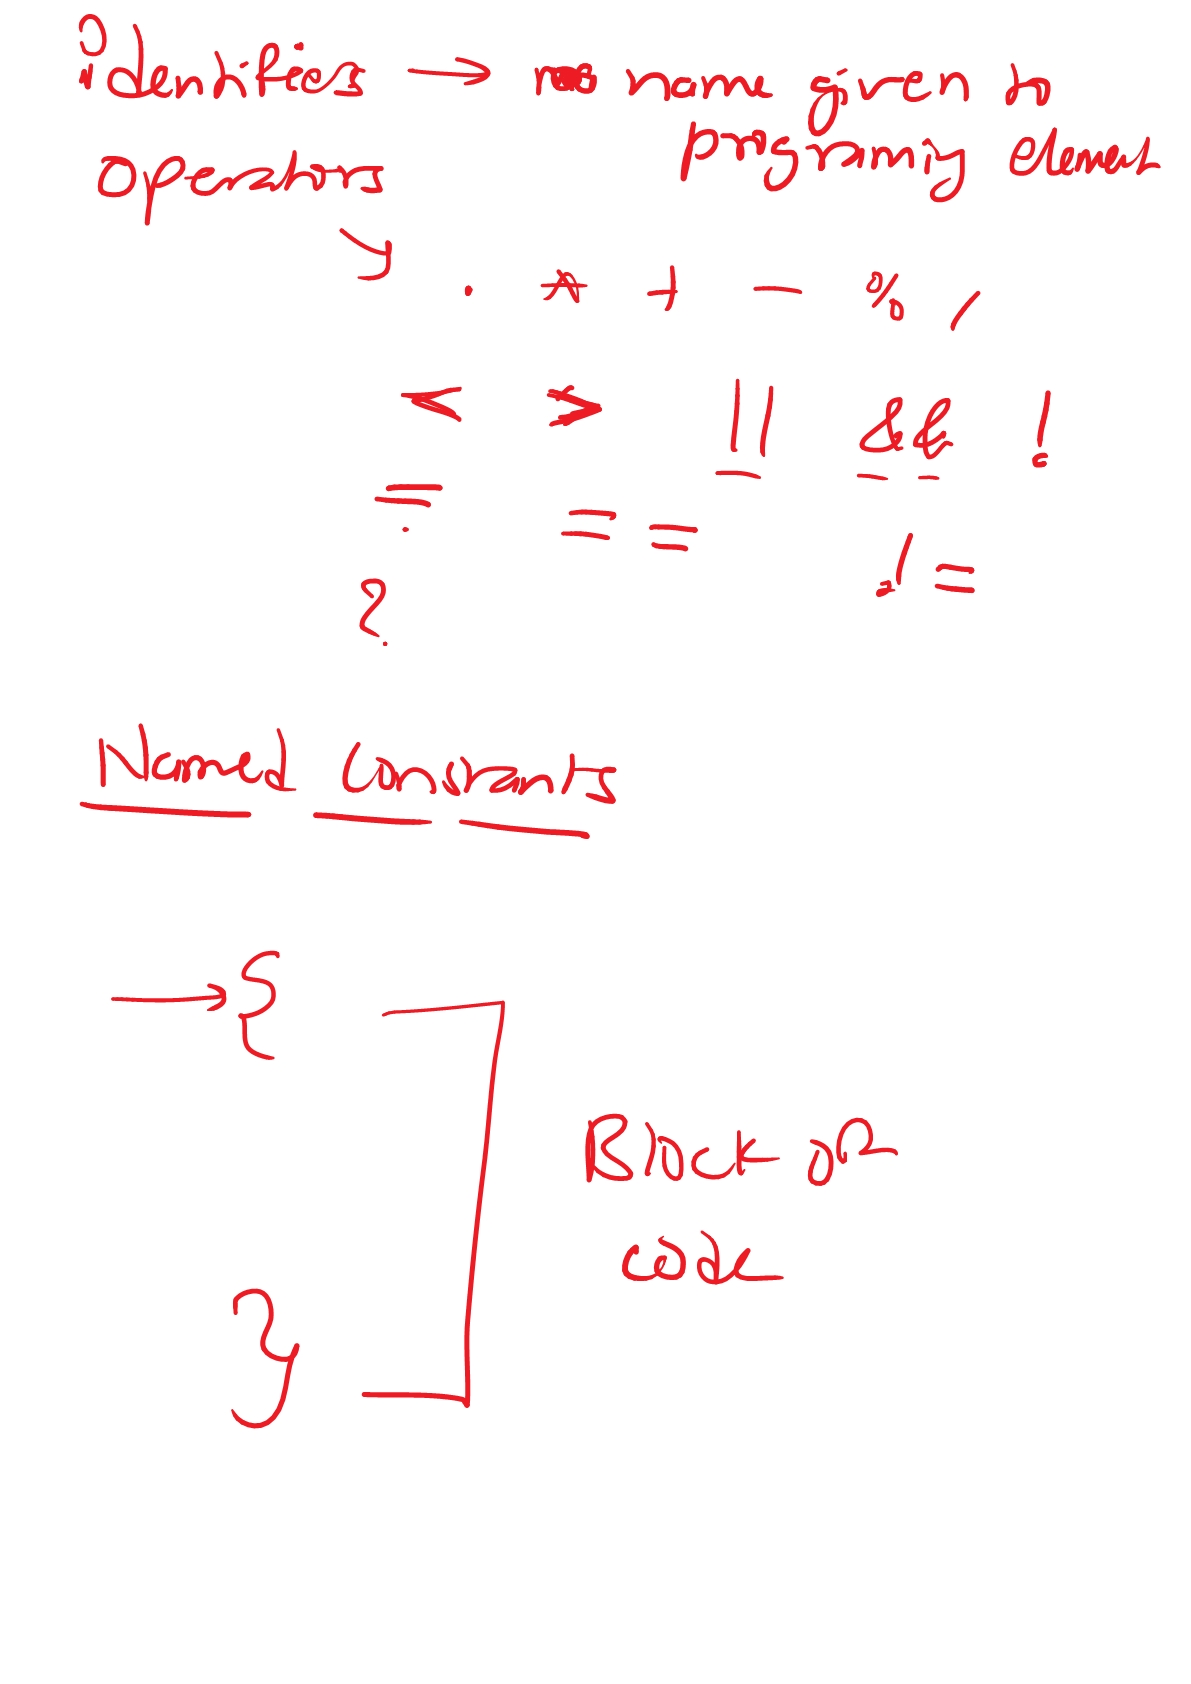 identifies → name given to
programig element
operators
. * + - % /
< > || && !
= == !=
?
Named Constants
→ {
Block of
code
}